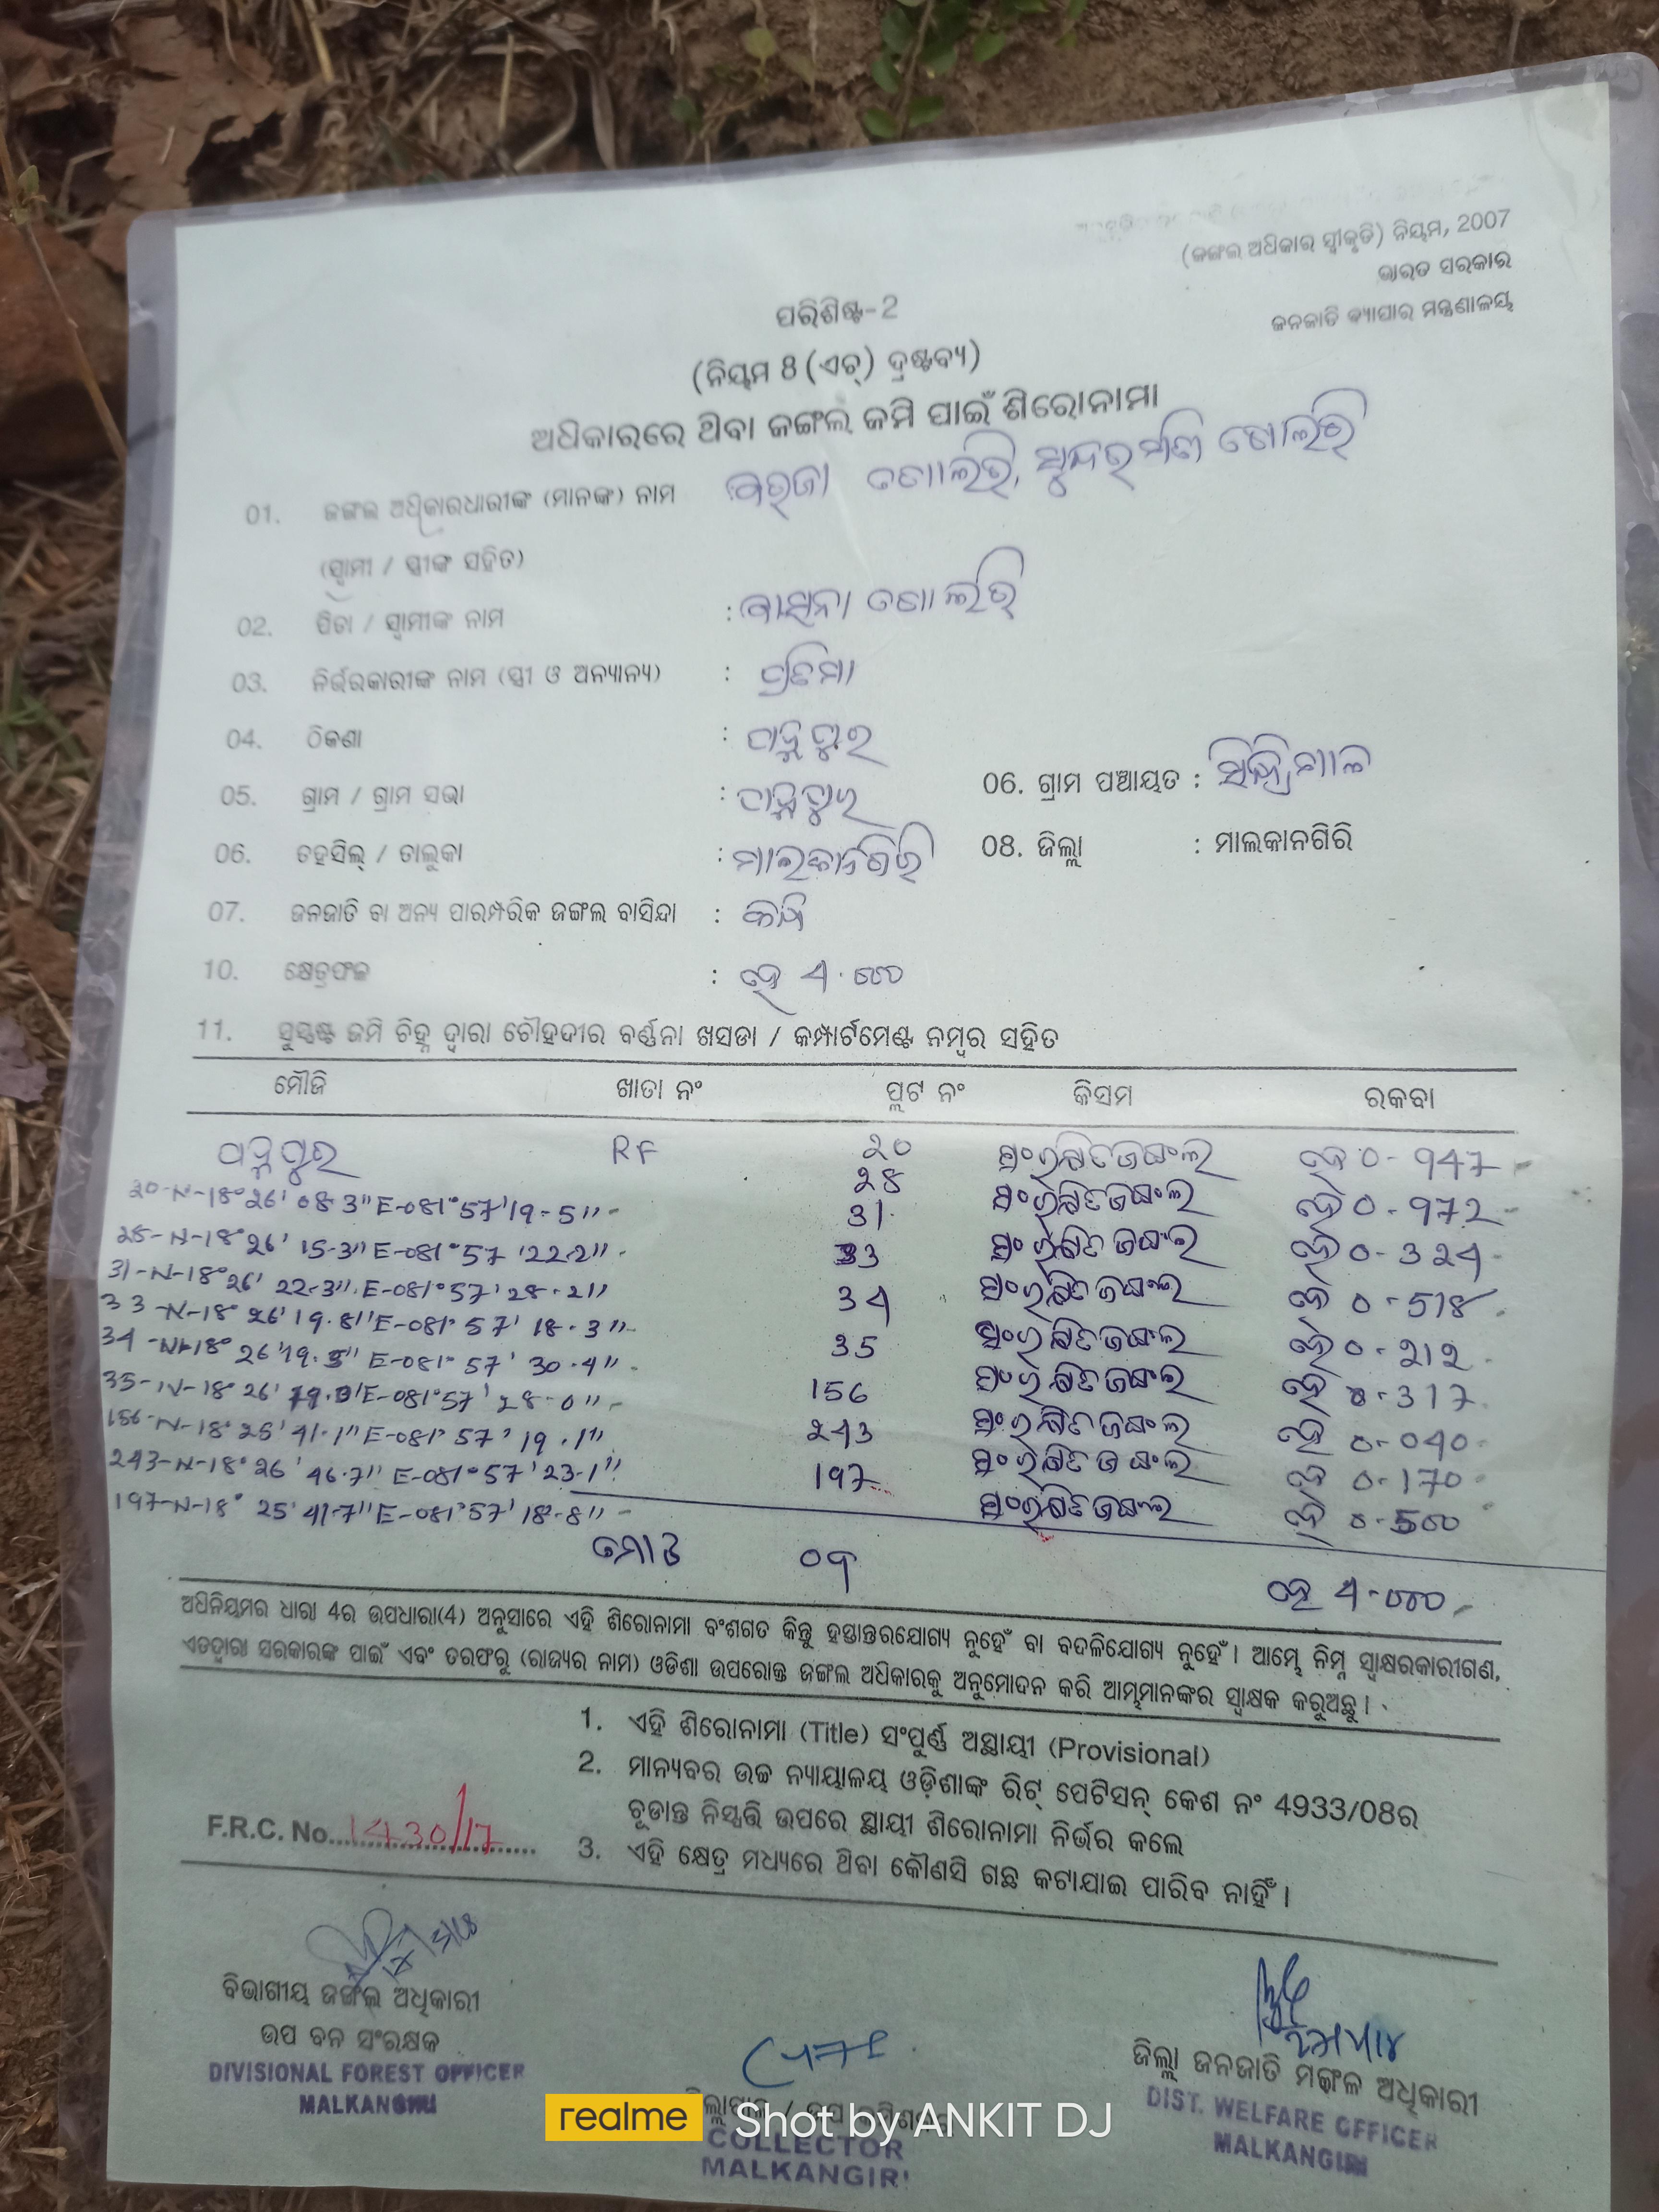 (ଜଙ୍ଗଲ ଅଧିକାର ସ୍ୱୀକୃତି) ନିୟମ, 2007
ଭାରତ ସରକାର
ଜନଜାତି ବ୍ୟାପାର ମନ୍ତ୍ରଣାଳୟ
ପରିଶିଷ୍ଟ-2
(ନିୟମ 8 (ଏଚ୍) ଦ୍ରଷ୍ଟବ୍ୟ)
ଅଧିକାରରେ ଥିବା ଜଙ୍ଗଲ ଜମି ପାଇଁ ଶିରୋନାମା
01. ଜଙ୍ଗଲ ଅଧିକାରଧାରୀଙ୍କ (ମାନଙ୍କ) ନାମ
(ସ୍ୱାମୀ / ସ୍ତ୍ରୀଙ୍କ ସହିତ)
02. ପିତା / ସ୍ୱାମୀଙ୍କ ନାମ :
03. ନିର୍ଭରକାରୀଙ୍କ ନାମ (ସ୍ତ୍ରୀ ଓ ଅନ୍ୟାନ୍ୟ) : ପ୍ରତିମା
04. ଠିକଣା :
05. ଗ୍ରାମ / ଗ୍ରାମ ସଭା : 06. ଗ୍ରାମ ପଞ୍ଚାୟତ :
06. ତହସିଲ୍ / ତାଲୁକା : ମାଲକାନଗିରି 08. ଜିଲ୍ଲା : ମାଲକାନଗିରି
07. ଜନଜାତି ବା ଅନ୍ୟ ପାରମ୍ପରିକ ଜଙ୍ଗଲ ବାସିନ୍ଦା :
10. କ୍ଷେତ୍ରଫଳ : ହେ 4.000
11. ସୁସ୍ପଷ୍ଟ ଜମି ଚିହ୍ନ ଦ୍ୱାରା ଚୌହଦ୍ଦୀର ବର୍ଣ୍ଣନା ଖସଡା / କମ୍ପାର୍ଟମେଣ୍ଟ ନମ୍ବର ସହିତ
ମୌଜି ଖାତା ନଂ ପ୍ଲଟ ନଂ କିସମ ରକବା
RF 20 ସଂରକ୍ଷିତ ଜଙ୍ଗଲ ହେ 0-947
20-N-18°26' 08.3" E-081°57'19.5" 28 ସଂରକ୍ଷିତ ଜଙ୍ଗଲ ହେ 0-972
28-N-18°26' 15.3" E-081°57'22.2" 31 ସଂରକ୍ଷିତ ଜଙ୍ଗଲ ହେ 0-324
31-N-18°26' 22.3" E-081°57'28.2" 33 ସଂରକ୍ଷିତ ଜଙ୍ଗଲ ହେ 0-518
33-N-18°26'19.8" E-081°57'18.3" 34 ସଂରକ୍ଷିତ ଜଙ୍ଗଲ ହେ 0-212
34-N-18°26'19.5" E-081°57'30.4" 35 ସଂରକ୍ଷିତ ଜଙ୍ଗଲ ହେ 0-317
35-N-18°26' E-081°57'28.0" 156 ସଂରକ୍ଷିତ ଜଙ୍ଗଲ ହେ 0-040
156-N-18°25'41.1" E-081°57'19.1" 243 ସଂରକ୍ଷିତ ଜଙ୍ଗଲ ହେ 0-170
243-N-18°26'46.7" E-081°57'23.1" 197 ସଂରକ୍ଷିତ ଜଙ୍ଗଲ ହେ 0-500
197-N-18°25'41.7" E-081°57'18.8"
ମୋଟ ୦୯ ହେ 4-000
ଅଧିନିୟମର ଧାରା 4ର ଉପଧାରା(4) ଅନୁସାରେ ଏହି ଶିରୋନାମା ବଂଶଗତ କିନ୍ତୁ ହସ୍ତାନ୍ତରଯୋଗ୍ୟ ନୁହେଁ ବା ବଦଳିଯୋଗ୍ୟ ନୁହେଁ। ଆମ୍ଭେ ନିମ୍ନ ସ୍ୱାକ୍ଷରକାରୀଗଣ,
ଏତଦ୍ୱାରା ସରକାରଙ୍କ ପାଇଁ ଏବଂ ତରଫରୁ (ରାଜ୍ୟର ନାମ) ଓଡିଶା ଉପରୋକ୍ତ ଜଙ୍ଗଲ ଅଧିକାରକୁ ଅନୁମୋଦନ କରି ଆମ୍ଭମାନଙ୍କର ସ୍ୱାକ୍ଷକ କରୁଅଛୁ।
1. ଏହି ଶିରୋନାମା (Title) ସଂପୂର୍ଣ୍ଣ ଅସ୍ଥାୟୀ (Provisional)
2. ମାନ୍ୟବର ଉଚ୍ଚ ନ୍ୟାୟାଳୟ ଓଡ଼ିଶାଙ୍କ ରିଟ୍ ପେଟିସନ୍ କେଶ ନଂ 4933/08ର
ଚୂଡାନ୍ତ ନିସ୍ପତ୍ତି ଉପରେ ସ୍ଥାୟୀ ଶିରୋନାମା ନିର୍ଭର କଲେ
F.R.C. No. 1430/17
3. ଏହି କ୍ଷେତ୍ର ମଧ୍ୟରେ ଥିବା କୌଣସି ଗଛ କଟାଯାଇ ପାରିବ ନାହିଁ।
ବିଭାଗୀୟ ଜଙ୍ଗଲ ଅଧିକାରୀ
ଉପ ବନ ସଂରକ୍ଷକ
DIVISIONAL FOREST OFFICER
MALKANGIRI
COLLECTOR
MALKANGIRI
ଜିଲ୍ଲା ଜନଜାତି ମଙ୍ଗଳ ଅଧିକାରୀ
DIST. WELFARE OFFICER
MALKANGIRI
realme Shot by ANKIT DJ